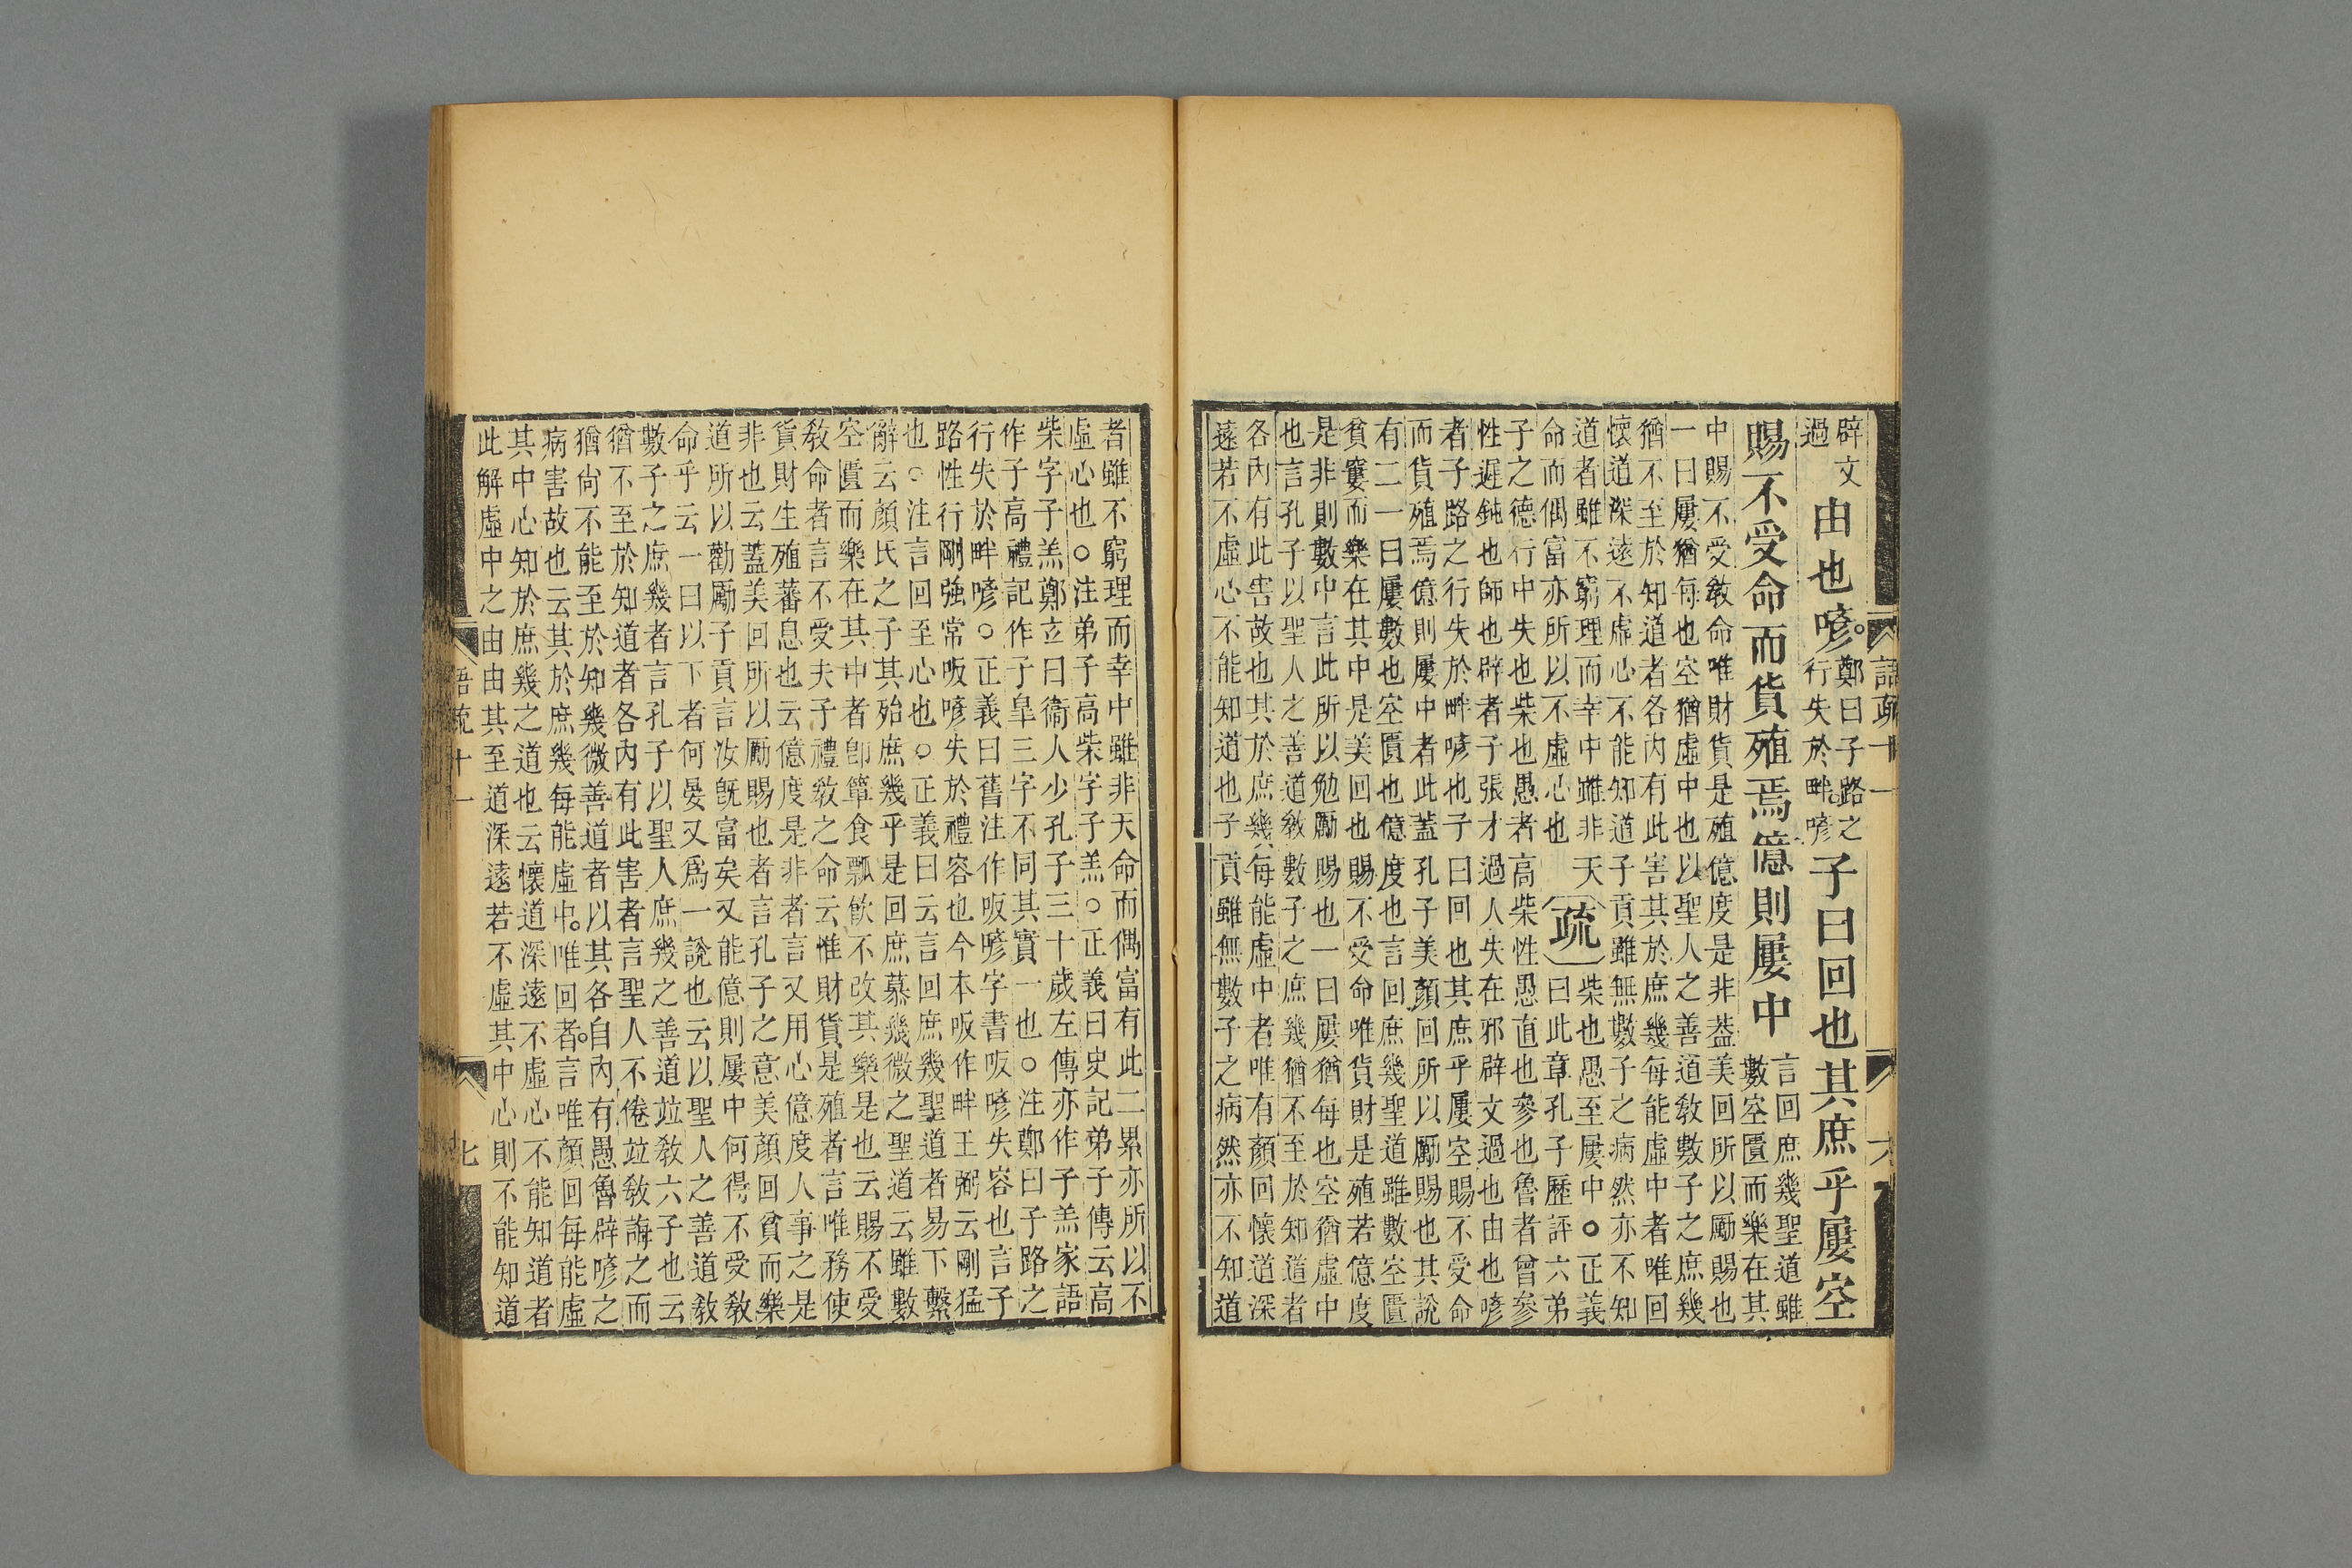 語疏十一　六
辟文
過
由也喭。
鄭曰子路之
行失於畔喭
子曰回也其庶乎屢空
賜不受命而貨殖焉億則屢中
言回庶幾聖道雖
數空匱而樂在其
中賜不受教命唯財貨是殖億度是非葢美回所以勵賜也
一曰屢猶每也空猶虛中也以聖人之善道教數子之庶幾
猶不至於知道者各內有此害其於庶幾每能虛中者唯回
懷道深遠不虛心不能知道子貢雖無數子之病然亦不知
道者雖不窮理而幸中雖非天
命而偶富亦所以不虛心也
疏
柴也愚至屢中○正義
曰此章孔子歷評六弟
子之德行中失也柴也愚者高柴性愚直也參也魯者曾參
性遲鈍也師也辟者子張才過人失在邪辟文過也由也喭
者子路之行失於畔喭也子曰回也其庶乎屢空賜不受命
而貨殖焉億則屢中者此蓋孔子美顏回所以勵賜也其說
有二一曰屢數也空匱也億度也言回庶幾聖道雖數空匱
貧窶而樂在其中是美回也賜不受命唯貨財是殖若億度
是非則數中言此所以勉勵賜也一曰屢猶每也空猶虛中
也言孔子以聖人之善道教數子之庶幾猶不至於知道者
各內有此害故也其於庶幾每能虛中者唯有顏回懷道深
遠若不虛心不能知道也子貢雖無數子之病然亦不知道
者雖不窮理而幸中雖非天命而偶富有此二累亦所以不
虛心也○注弟子高柴字子羔○正義曰史記弟子傳云高
柴字子羔鄭玄曰衞人少孔子三十歲左傳亦作子羔家語
作子高禮記作子皐三字不同其實一也○注鄭曰子路之
行失於畔喭○正義曰舊注作吸喭字書吸喭失容也言子
路性行剛強常吸喭失於禮容也今本吸作畔王弼云剛猛
也○注言回至心也○正義曰云言回庶幾聖道者易下繫
辭云顏氏之子其殆庶幾乎是回庶慕幾微之聖道云雖數
空匱而樂在其中者卽簞食瓢飲不改其樂是也云賜不受
教命者言不受夫子禮教之命云惟財貨是殖者言唯務使
貨財生殖蕃息也云億度是非者言又用心億度人事之是
非也云蓋美回所以勵賜也者言孔子之意美顏回貧而樂
道所以勸勵子貢言汝旣富矣又能億則屢中何得不受教
命乎云一曰以下者何晏又爲一說也云以聖人之善道教
數子之庶幾者言孔子以聖人庶幾之善道竝教六子也云
猶不至於知道者各內有此害者言聖人不倦竝教誨之而
猶尙不能至於知幾微善道者以其各自內有愚魯辟喭之
病害故也云其於庶幾每能虛中。唯回者。言唯顏回每能虛
其中心知於庶幾之道也云懷道深遠不虛心不能知道者
此解虛中之由由其至道深遠若不虛其中心則不能知道
語疏十一　七